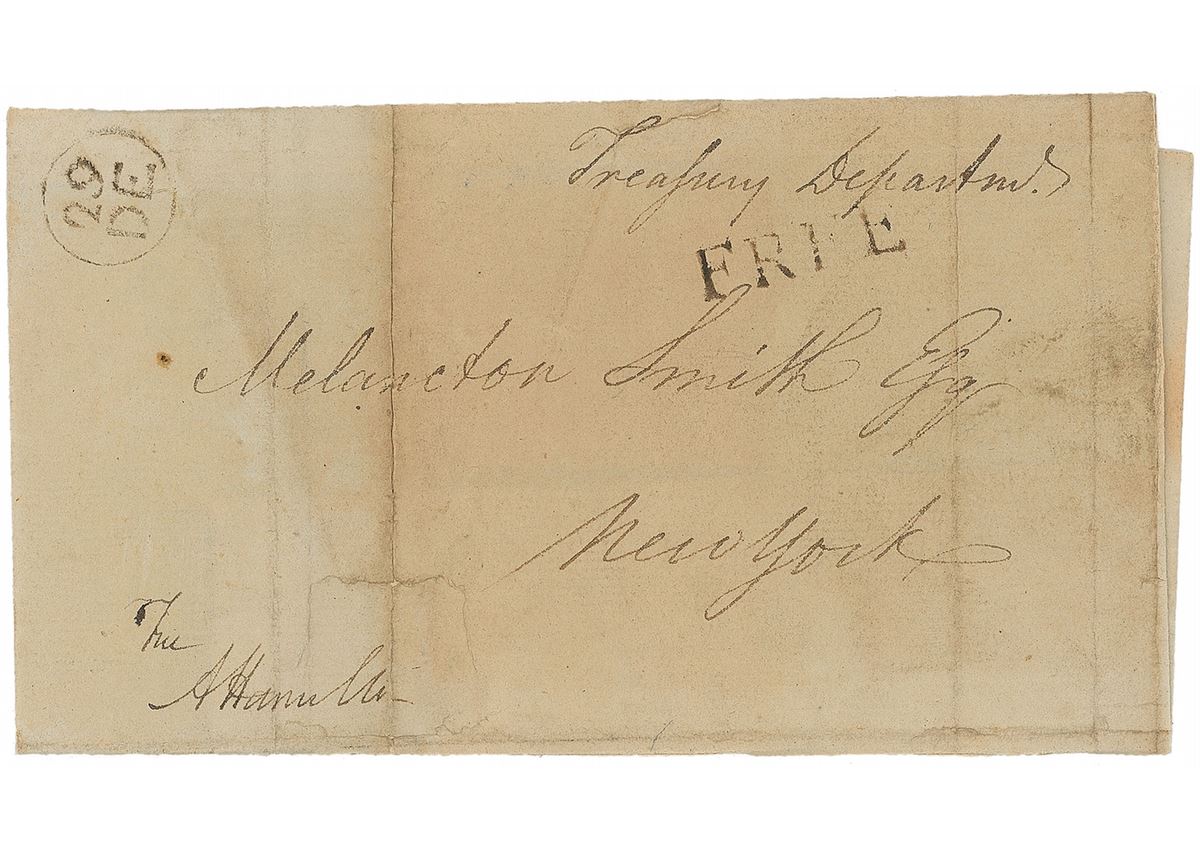 29
DE
Treasury Departmt.
FREE
Melancton Smith Esq
New York
Free
A Hamilton